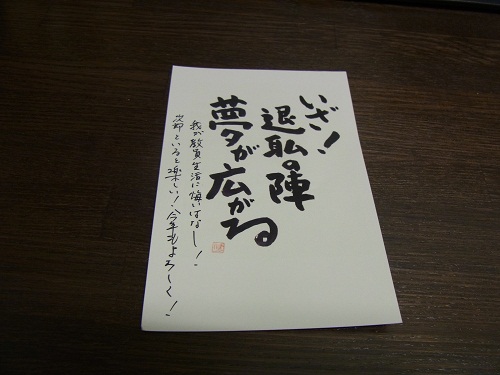 いざ!
退私の陣
夢が広がる
我が教員生活に悔いはなし!
次郎といると楽しい!今年もよろしく!